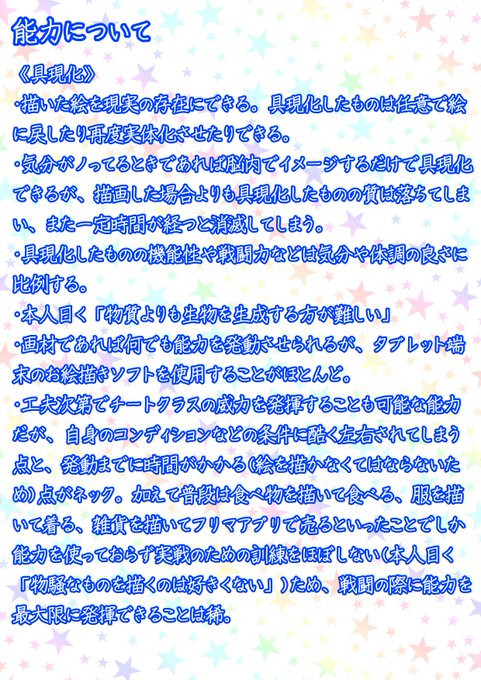 能力について
《具現化》
・描いた絵を現実の存在にできる。具現化したものは任意で絵
に戻したり再度実体化させたりできる。
・気分がノッてるときであれば脳内でイメージするだけで具現化
できるが、描画した場合よりも具現化したものの質は落ちてしま
い、また一定時間が経つと消滅してしまう。
・具現化したものの機能性や戦闘力などは気分や体調の良さに
比例する。
・本人曰く「物質よりも生物を生成する方が難しい」
・画材であれば何でも能力を発動させられるが、タブレット端
末のお絵描きソフトを使用することがほとんど。
・工夫次第でチートクラスの威力を発揮することも可能な能力
だが、自身のコンディションなどの条件に酷く左右されてしまう
点と、発動までに時間がかかる(絵を描かなくてはならないた
め)点がネック。加えて普段は食べ物を描いて食べる、服を描
いて着る、雑貨を描いてフリマアプリで売るといったことでしか
能力を使っておらず実戦のための訓練をほぼしない(本人曰く
「物騒なものを描くのは好きくない」)ため、戦闘の際に能力を
最大限に発揮できることは稀。